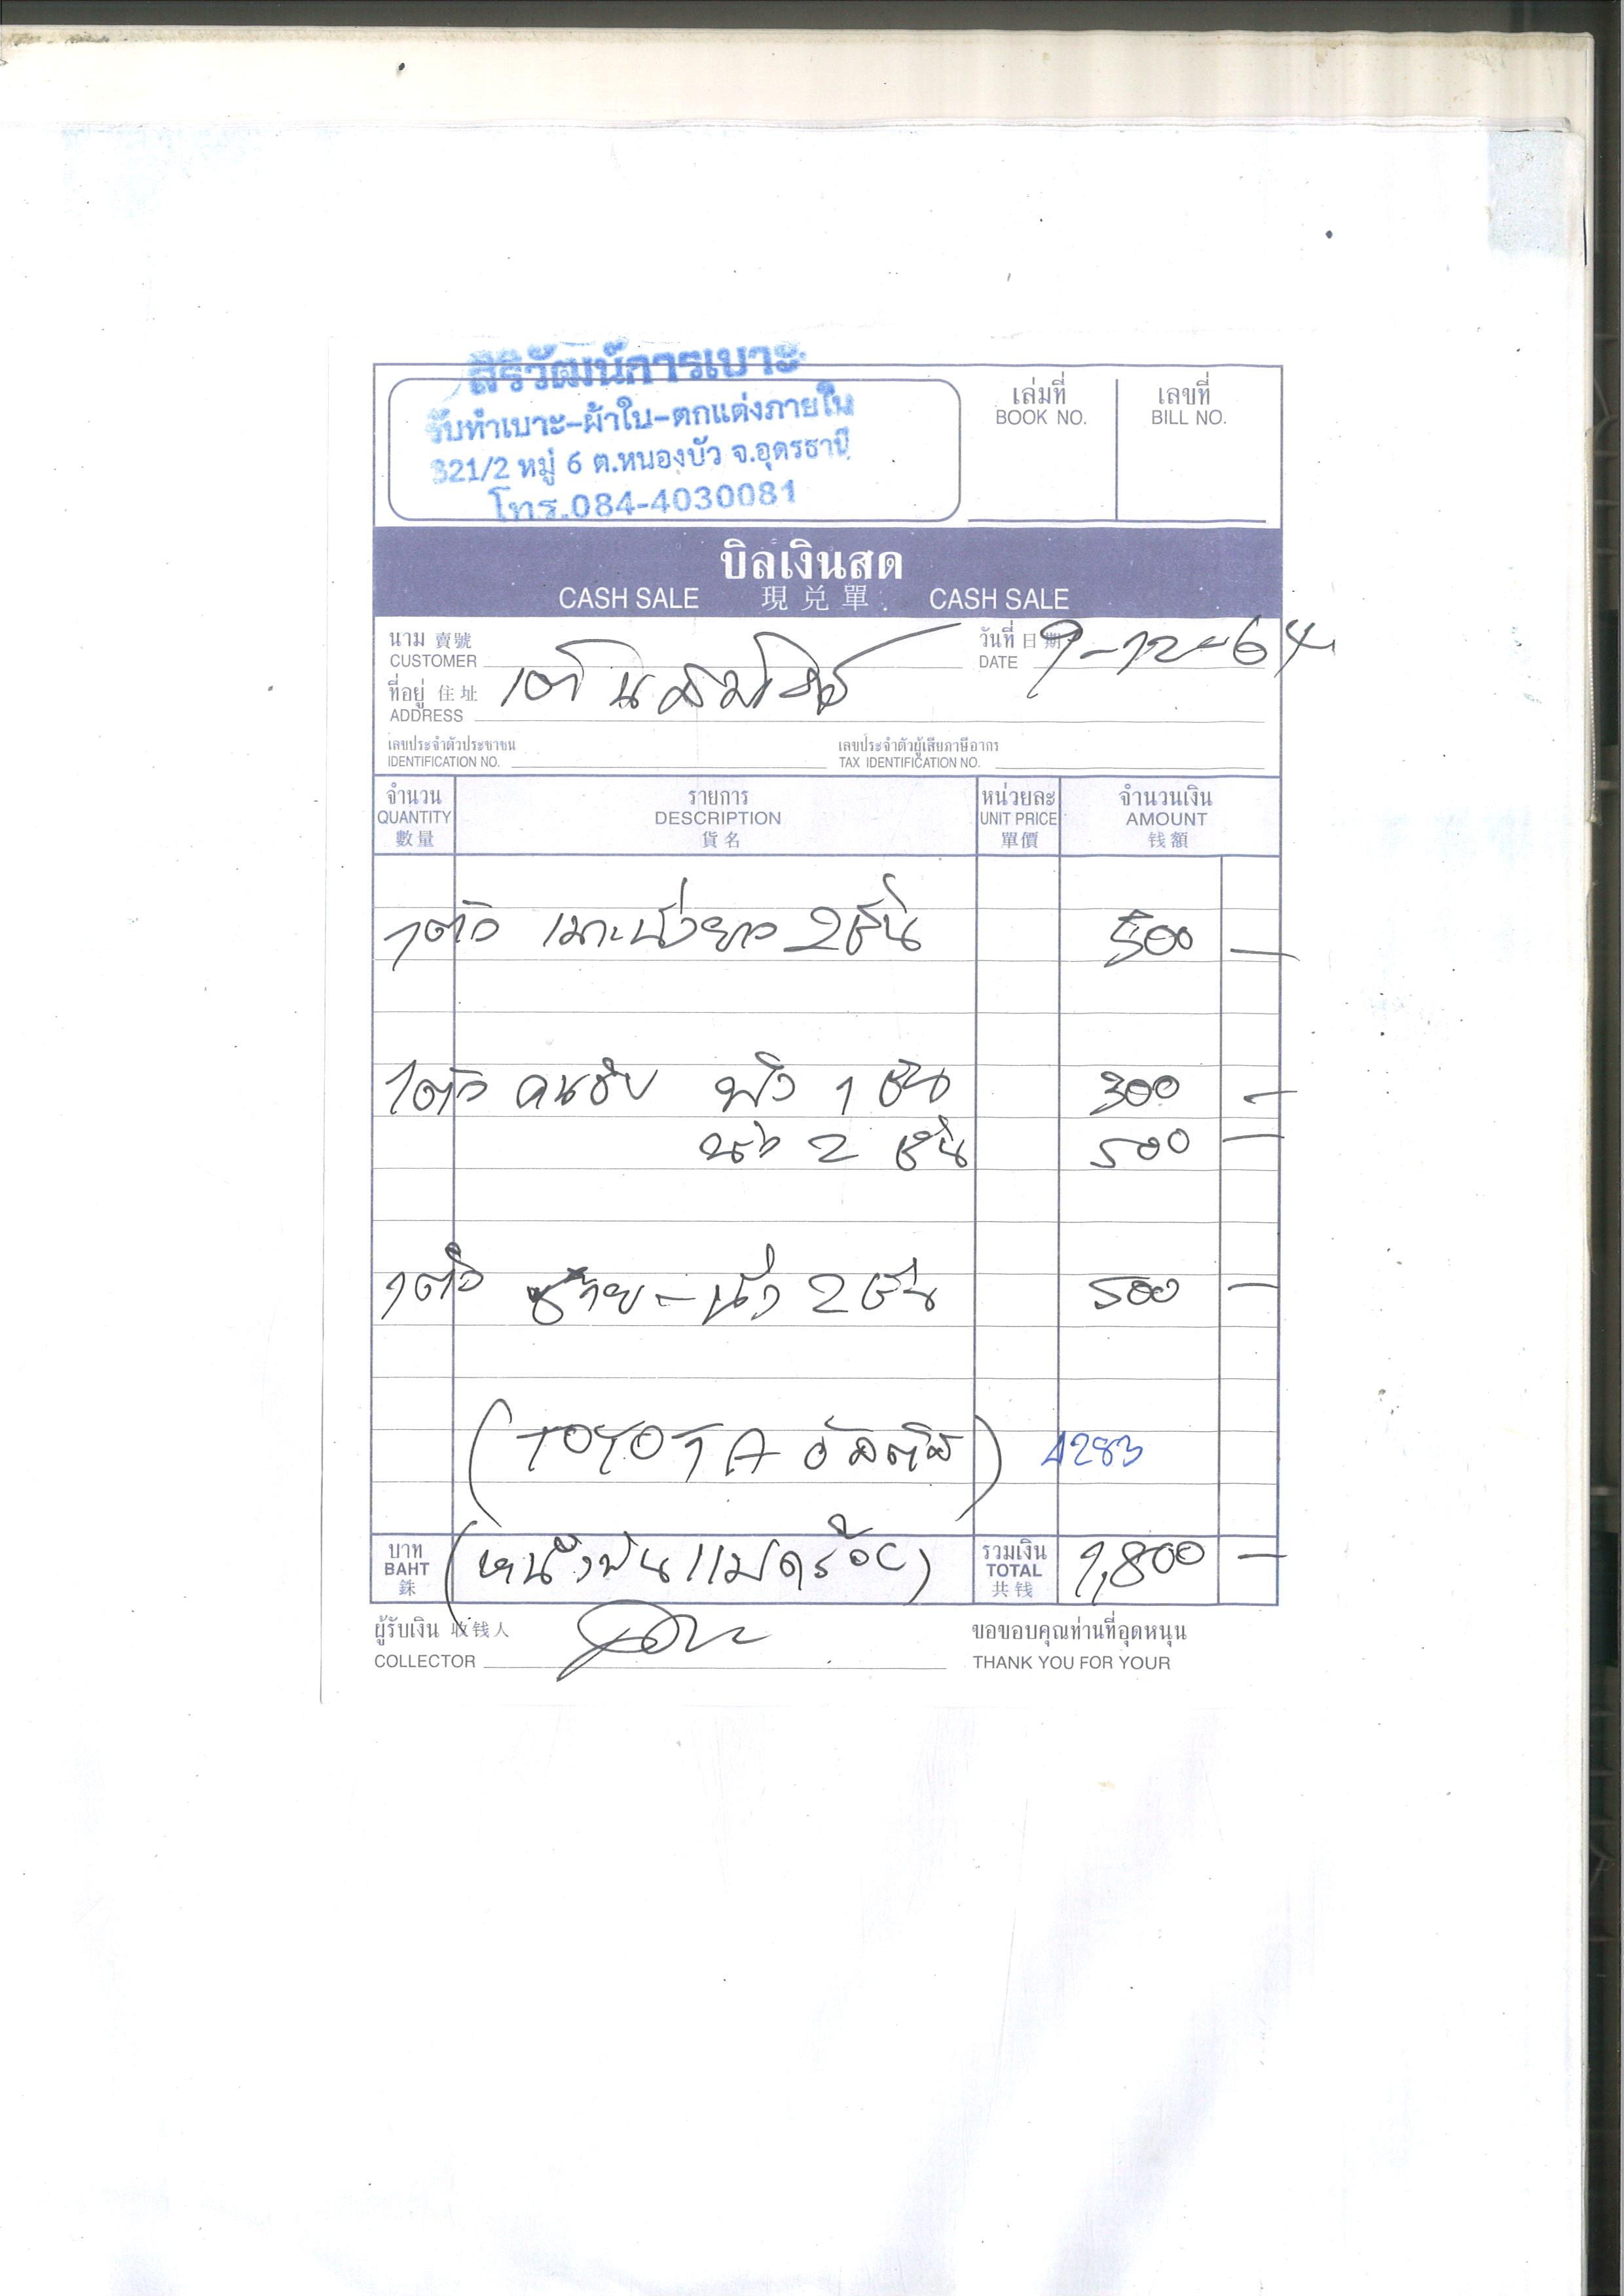 สิริวัฒน์การเบาะ
รับทำเบาะ-ผ้าใบ-ตกแต่งภายใน
321/2 หมู่ 6 ต.หนองบัว จ.อุดรธานี
โทร.084-4030081
เล่มที่ เลขที่
BOOK NO. BILL NO.
บิลเงินสด
CASH SALE 現兑單 CASH SALE
นาม 賣號 วันที่ 日期 9-12-64
CUSTOMER DATE
ที่อยู่ 住址
ADDRESS
เลขประจำตัวประชาชน เลขประจำตัวผู้เสียภาษีอากร
IDENTIFICATION NO. TAX IDENTIFICATION NO.
จำนวน รายการ หน่วยละ จำนวนเงิน
QUANTITY DESCRIPTION UNIT PRICE AMOUNT
數量 貨名 單價 钱額
1ตัว เบาะนั่งยาว 2ชิ้น 500 -
1ตัว คนขับ พิง 1 ชิ้น 300 -
นั่ง 2 ชิ้น 500 -
1ตัว ซ้าย - นั่ง 2 ชิ้น 500 -
(TOYOTA อัลติส) 4283
บาท (หนึ่งพันแปดร้อย) รวมเงิน 1,800 -
BAHT TOTAL
銖 共钱
ผู้รับเงิน 收钱人 ขอขอบคุณท่านที่อุดหนุน
COLLECTOR THANK YOU FOR YOUR